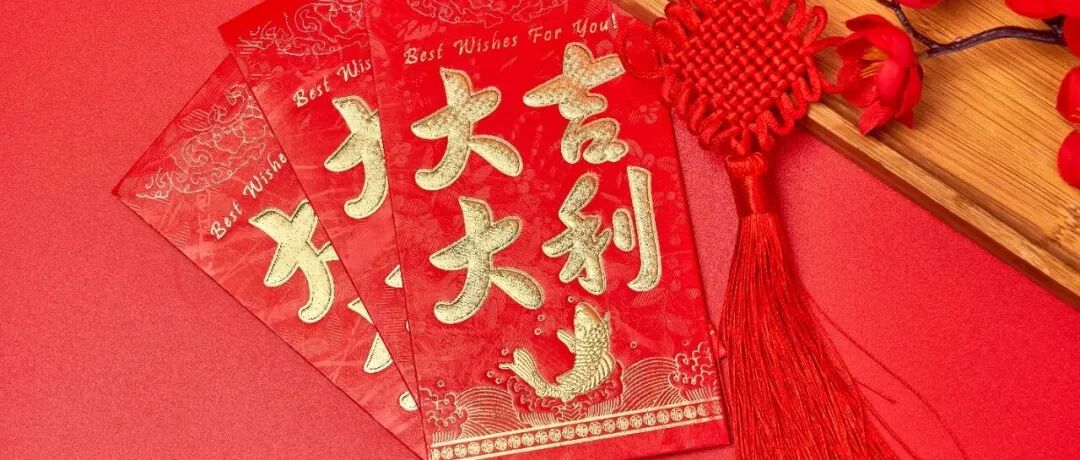 Best Wishes For You!
大吉
大利
Best Wis
大
Best Wishe
大